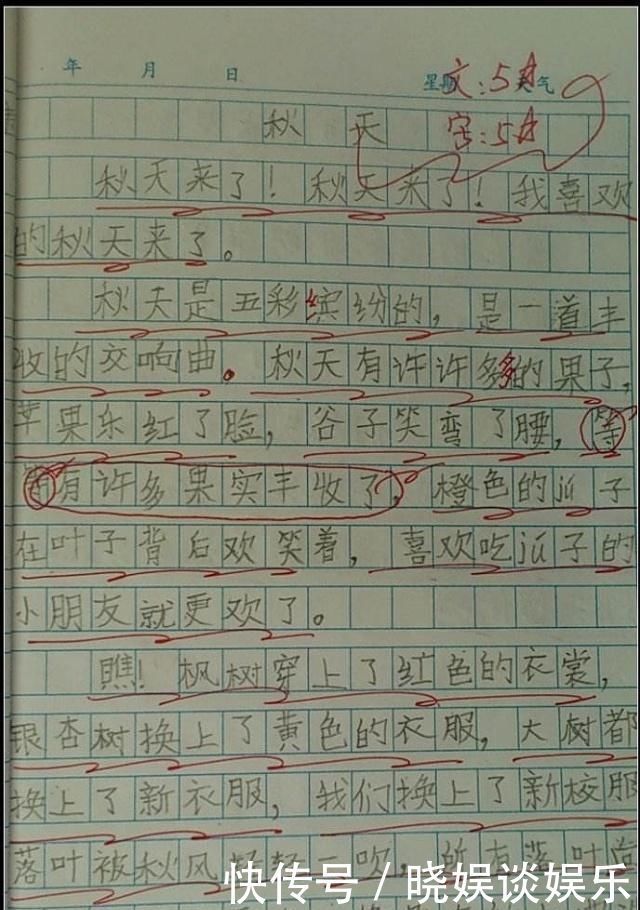 年 月 日 星期 文:5☆ 气
秋天 字:5☆
秋天来了!秋天来了!我喜欢
的秋天来了。
秋天是五彩缤纷的,是一道丰
收的交响曲。秋天有许许多多的果子,
苹果乐红了脸,谷子笑弯了腰,等
等有许多果实丰收了,橙色的jú子
在叶子背后欢笑着,喜欢吃jú子的
小朋友就更欢了。
瞧!枫树穿上了红色的衣裳,
银杏树换上了黄色的衣服,大树都
换上了新衣服,我们换上了新校服
落叶被秋风轻轻一吹,所有落叶
快传号/晓娱谈娱乐